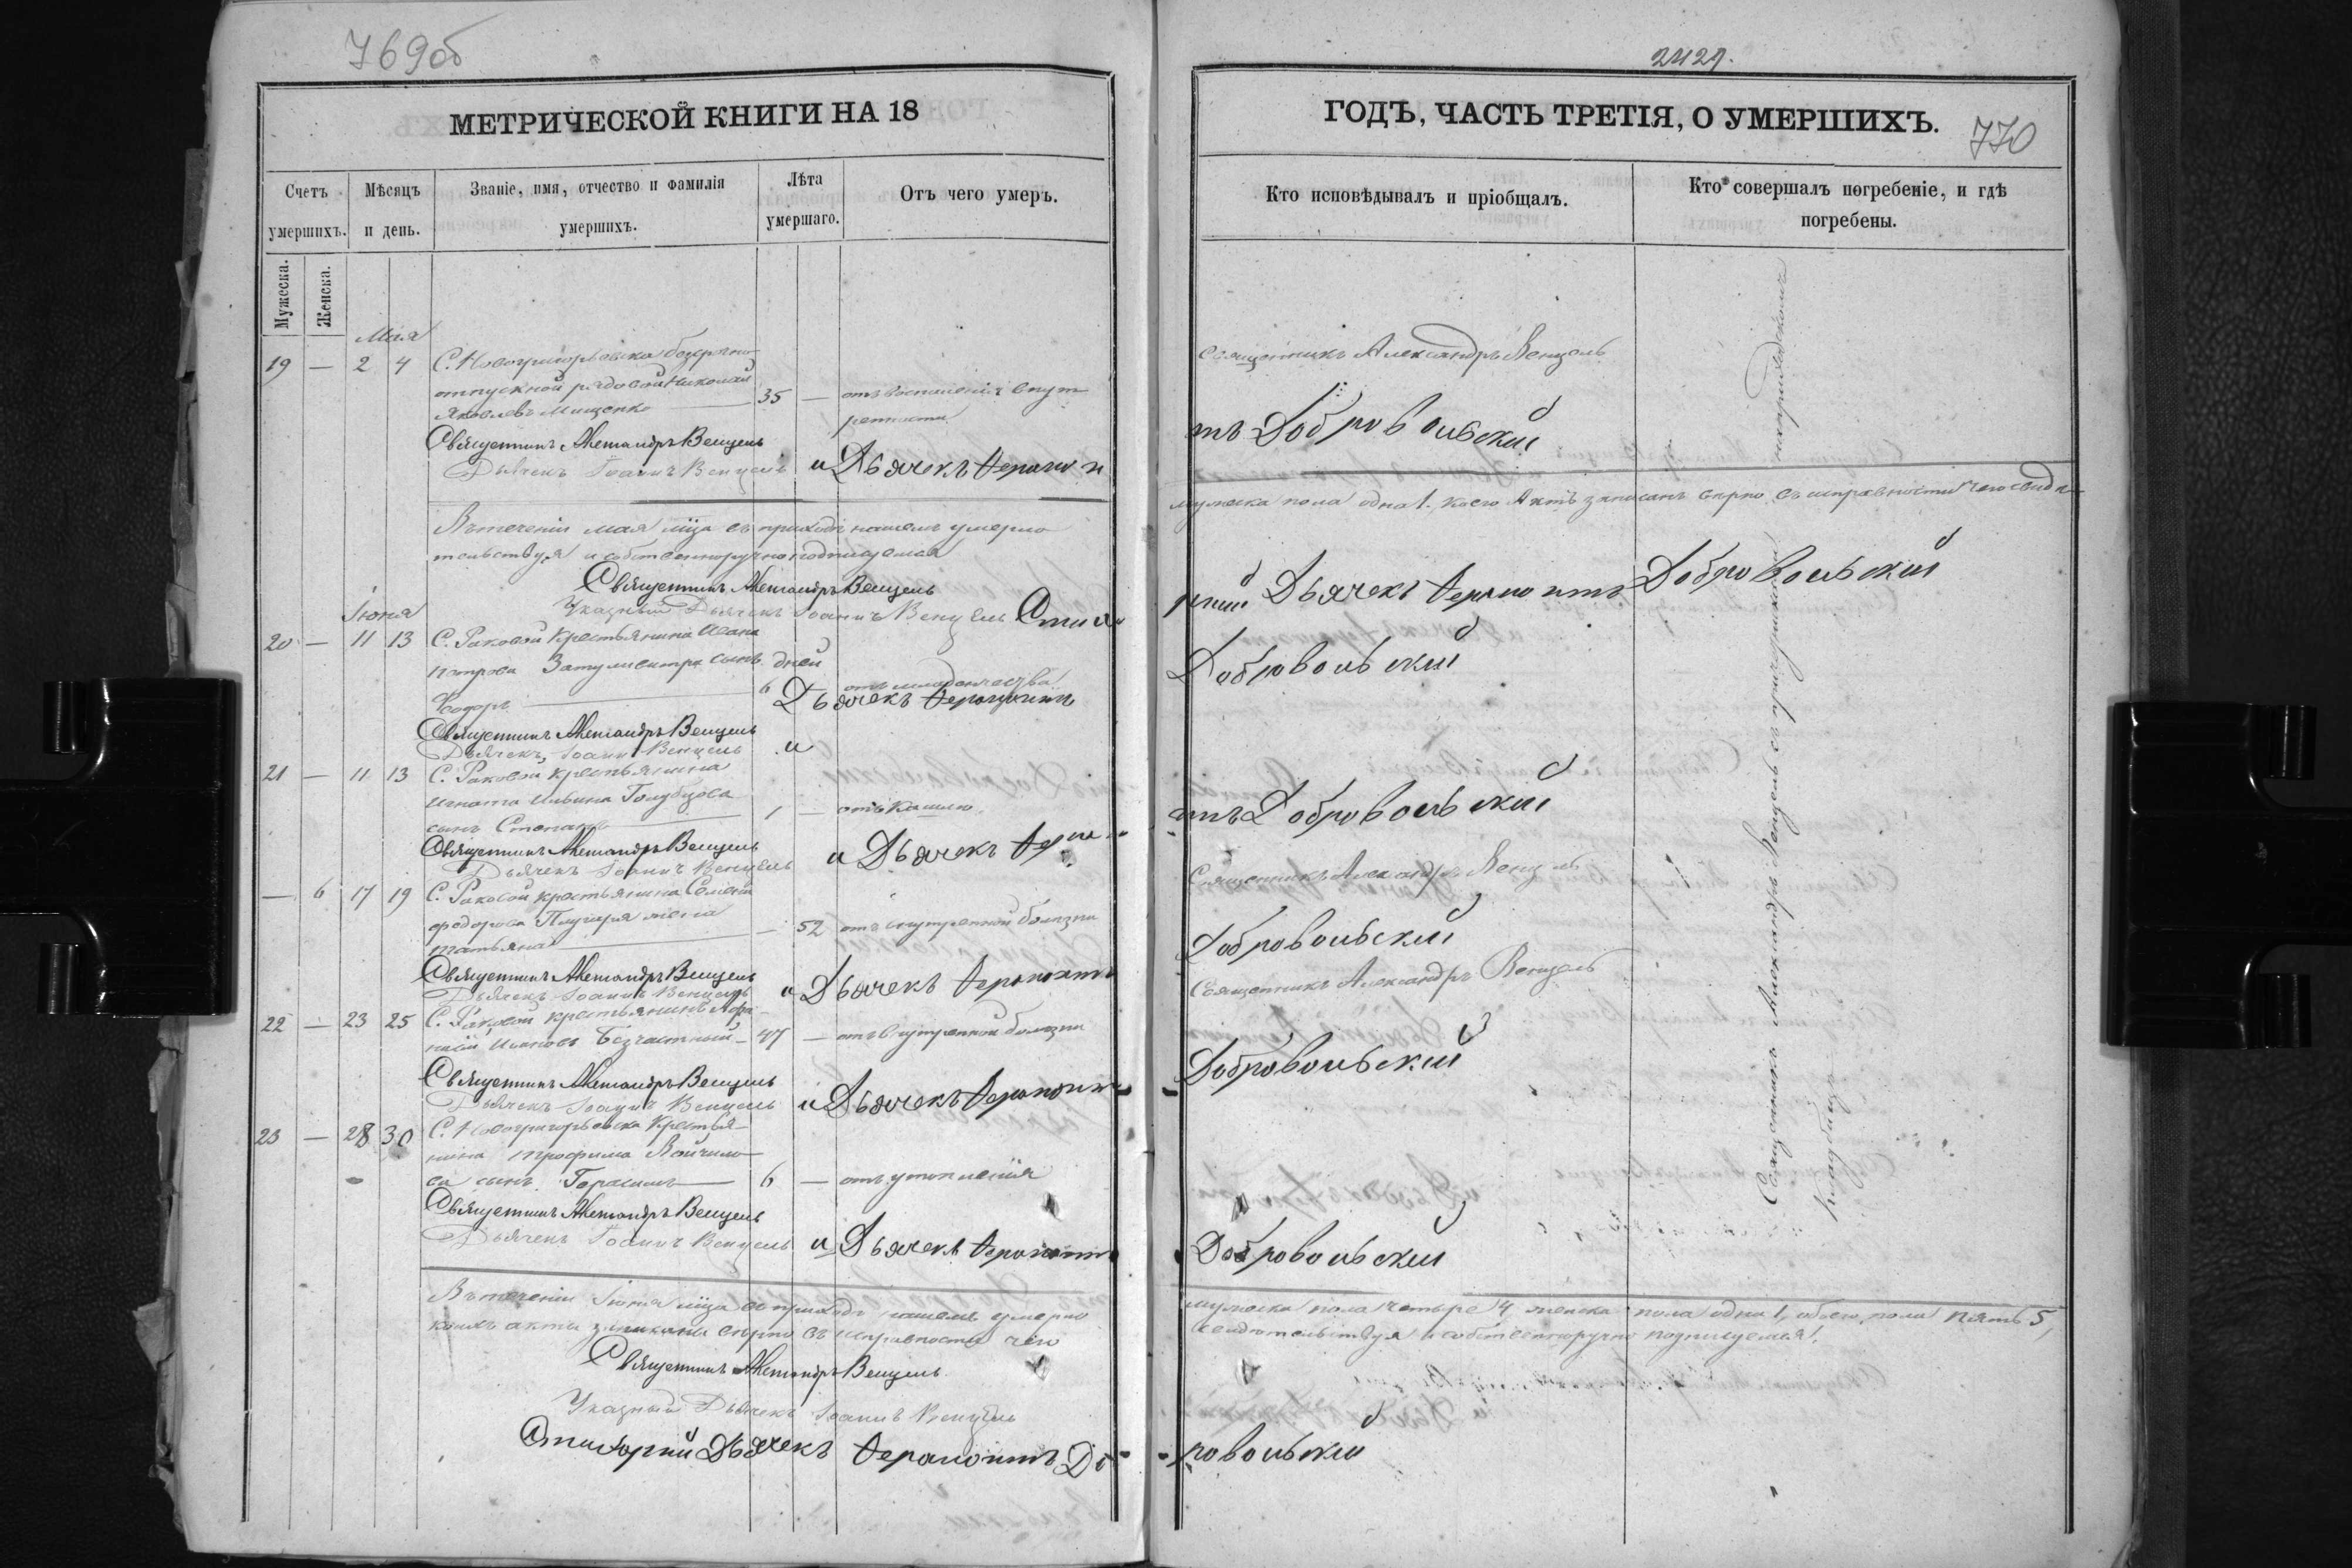 769об
МЕТРИЧЕСКОЙ КНИГИ НА 18
Счетъ умершихъ.
Мѣсяцъ и день.
Званіе, имя, отчество и фамилія умершихъ.
Лѣта умершаго.
Отъ чего умеръ.
Мужеска.
Женска.
Мая
19 — 2 4 С. Новогригорьевка безсрочно
отпускной рядовой Николай
Яковлевъ Мищенко 35 — отъ воспаленія внут
ренности
Священникъ Александръ Венцель
Дьячекъ Іоаннъ Венцель и Дьячекъ Ферапон
Въ теченіи мая мца въ приходѣ нашемъ умерло
тельствуя и собственноручно подписуемся
Священникъ Александръ Венцель
Указный Дьячекъ Іоаннъ Венцель
Іюня
20 — 11 13 С. Раковой Крестьянина Ивана
Петрова сынъ дней
Феодоръ 6 — отъ младенчества
Дьячекъ Ферапонтъ
Священникъ Александръ Венцель
Дьячекъ Іоаннъ Венцель и
21 — 11 13 С. Раковой Крестьянина
Игната Ильина Голубцова
сынъ Степанъ 1 — отъ кашлю
Священникъ Александръ Венцель
Дьячекъ Іоаннъ Венцель и Дьячекъ
— 6 17 19 С. Раковой крестьянина
Федорова жена
Татьяна — 52 отъ внутренной болезни
Священникъ Александръ Венцель
Дьячекъ Іоаннъ Венцель и Дьячекъ Ферапонтъ
22 — 23 25 С. Раковой крестьянинъ Афа
насій Ивановъ Безчастный — 47 — отъ внутренной болезни
Священникъ Александръ Венцель
Дьячекъ Іоаннъ Венцель и Дьячекъ Ферапонтъ
23 — 28 30 С. Новогригорьевка Крестья
нина Трофима
ва сынъ Герасимъ 6 — отъ утопленія
Священникъ Александръ Венцель
Дьячекъ Іоаннъ Венцель и Дьячекъ Ферапонтъ
Въ теченіи Іюня мца въ приходѣ нашемъ умерло
коихъ акты записаны вѣрно въ исправности чего
Священникъ Александръ Венцель
Указный Дьячекъ Іоаннъ Венцель
Дьячекъ Ферапонтъ До
2429.
770
ГОДЪ, ЧАСТЬ ТРЕТІЯ, О УМЕРШИХЪ.
Кто исповѣдывалъ и пріобщалъ.
Кто совершалъ погребеніе, и гдѣ погребены.
Священникъ Александръ Венцель
тъ Добровольскій
мужеска пола одна 1. коего Актъ записанъ вѣрно въ исправности чего свидѣ
рный Дьячекъ Ферапонтъ Добровольскій
Добровольскій
нтъ Добровольскій
Священникъ Александръ Венцель
Добровольскій
Священникъ Александръ Венцель
Добровольскій
Добровольскій
мужеска пола четыре 4, женска пола одна 1, обоего пола пять 5,
свидѣтельствуя и собственноручно подписуемся.
ровольскій
Священникъ Александръ Венцель съ причетниками на приходскомъ
кладбищѣ